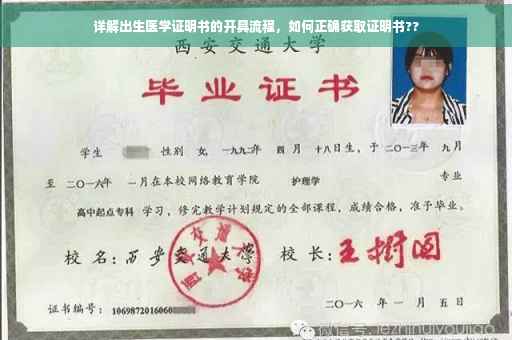 详解出生医学证明书的开具流程，如何正确获取证明书??
西安交通大学
毕业证书
学生 性别 女, 一九九二年 四 月 十八日生, 于 二〇一三年 九月
至 二〇一六年 一月在本校网络教育学院 护理学 专业
高中起点专科 学习, 修完教学计划规定的全部课程, 成绩合格, 准予毕业。
校 名: 西安交通大学 校 长: 王树国
西安交通大学
证书编号: 1069872016060
二〇一六 年 一 月 五 日
微信号: jezhihuiyoujiao